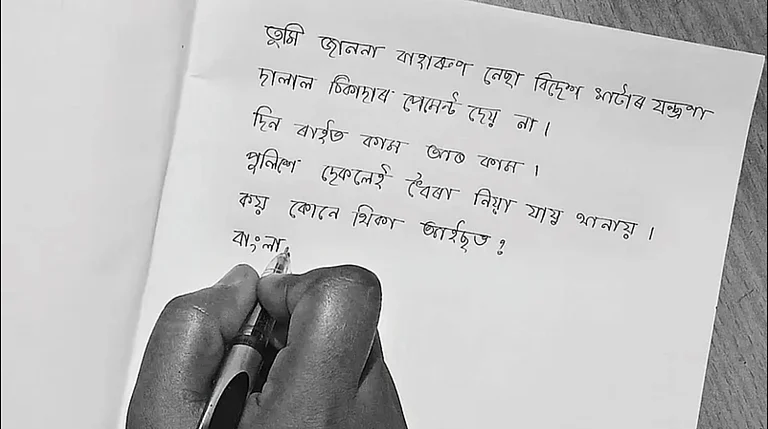 তুমি জাননা বাহারুণ নেছা বিদেশ মাটির যন্ত্রণা
দালাল ঠিকাদার পেমেন্ট দেয় না।
দিন রাইত কাম আর কাম।
পুলিশে দেকলেই ধৈরা নিয়া যায় থানায়।
কয় কোনে থিকা আইছত?
বাংলা